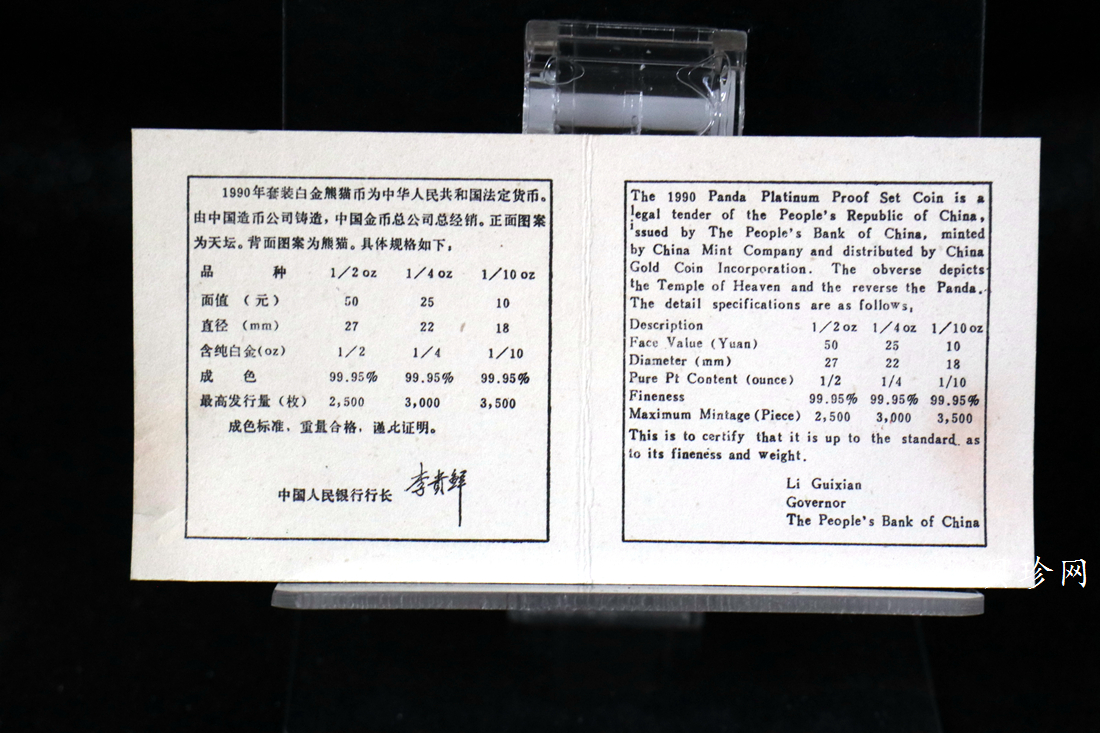 1990年套装白金熊猫币为中华人民共和国法定货币。
由中国造币公司铸造，中国金币总公司总经销。正面图案
为天坛。背面图案为熊猫。具体规格如下：
品 种 1/2 oz 1/4 oz 1/10 oz
面值（元） 50 25 10
直径（mm） 27 22 18
含纯白金(oz) 1/2 1/4 1/10
成 色 99.95% 99.95% 99.95%
最高发行量（枚） 2,500 3,000 3,500
成色标准，重量合格，谨此证明。
中国人民银行行长 李贵鲜
The 1990 Panda Platinum Proof Set Coin is a
legal tender of the People's Republic of China,
issued by The People's Bank of China, minted
by China Mint Company and distributed by China
Gold Coin Incorporation. The obverse depicts
the Temple of Heaven and the reverse the Panda.
The detail specifications are as follows,
Description 1/2 oz 1/4 oz 1/10 oz
Face Value (Yuan) 50 25 10
Diameter (mm) 27 22 18
Pure Pt Content (ounce) 1/2 1/4 1/10
Fineness 99.95% 99.95% 99.95%
Maximum Mintage (Piece) 2,500 3,000 3,500
This is to certify that it is up to the standard as
to its fineness and weight.
Li Guixian
Governor
The People's Bank of China
网